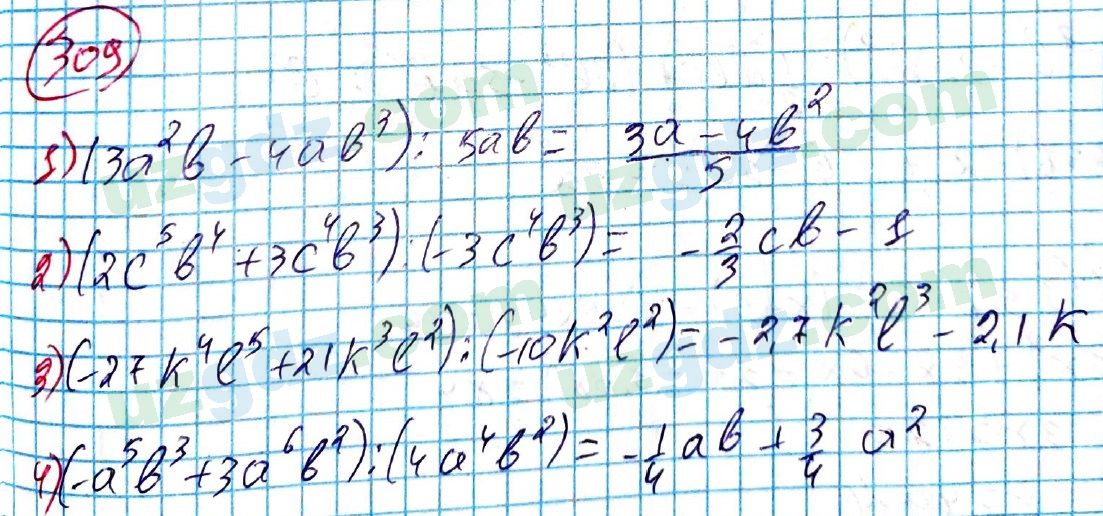 309
1) (3a²b - 4ab³) : 5ab = (3a - 4b²)/5
2) (2c⁵b⁴ + 3c⁴b³) : (-3c⁴b³) = - 2/3 cb - 1
3) (-27k⁴l⁵ + 21k³l²) : (-10k²l²) = - 2,7k²l³ - 2,1k
4) (-a⁵b³ + 3a⁶b²) : (4a⁴b²) = - 1/4 ab + 3/4 a²
uzgdz.com
uzgdz.com
uzgdz.com
uzgdz.com